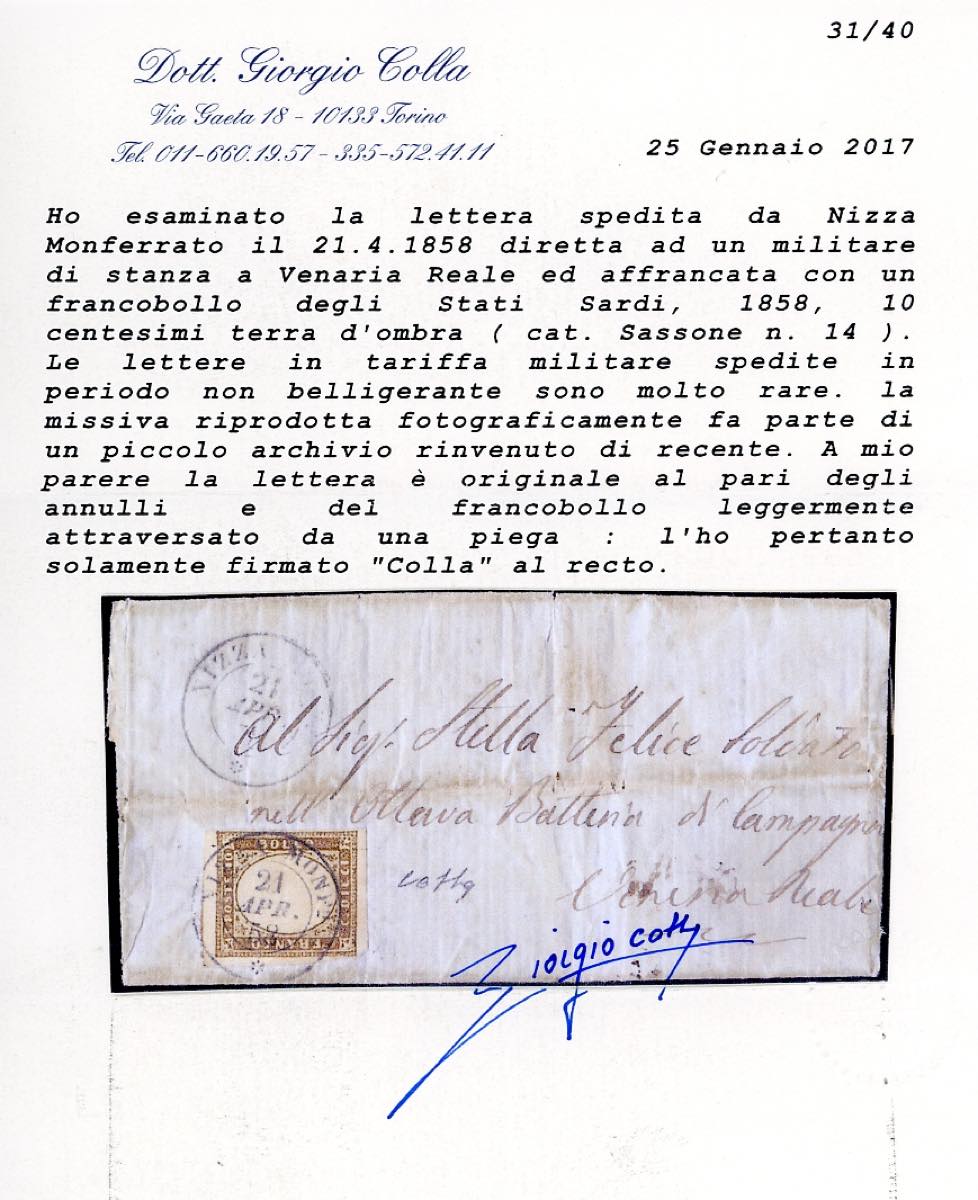 31/40
Dott. Giorgio Colla
Via Gaeta 18 - 10133 Torino
Tel. 011-660.19.57 - 335-572.41.11
25 Gennaio 2017
Ho esaminato la lettera spedita da Nizza
Monferrato il 21.4.1858 diretta ad un militare
di stanza a Venaria Reale ed affrancata con un
francobollo degli Stati Sardi, 1858, 10
centesimi terra d'ombra ( cat. Sassone n. 14 ).
Le lettere in tariffa militare spedite in
periodo non belligerante sono molto rare. la
missiva riprodotta fotograficamente fa parte di
un piccolo archivio rinvenuto di recente. A mio
parere la lettera è originale al pari degli
annulli e del francobollo leggermente
attraversato da una piega : l'ho pertanto
solamente firmato "Colla" al recto.
NIZZA
21
APR.
Al Sig. Stella Felice Soldato
nell' Ottava Batteria di Campagna
Reale
21
APR.
Colla
Giorgio Colla